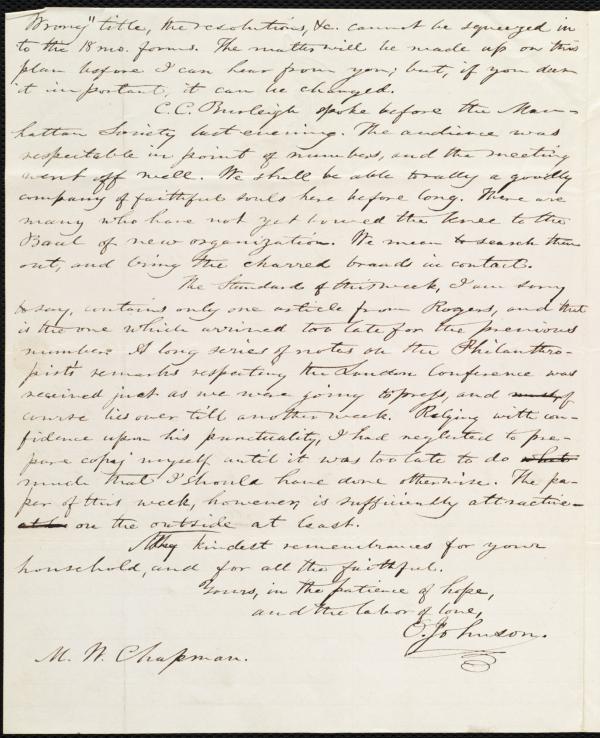 Wrong" title, the resolutions, &c. cannot be squeezed in
to the 18 mo. forms. The matter will be made up on this
plan before I can hear from you; but, if you deem
it important, it can be changed.
C. C. Burleigh spoke before the Man-
hattan Society last evening. The audience was
respectable in point of numbers, and the meeting
went off well. We shall be able to rally a goodly
company of faithful souls here before long. There are
many who have not yet bowed the knee to the
Baal of new organization. We mean to search them
out, and bring the charred brands in contact.
The Standard of this week, I am sorry
to say, contains only one article from Rogers, and that
is the one which arrived too late for the previous
number. A long series of notes on the Philanthro-
pist's remarks respecting the London Conference was
received just as we were going to press, and of
course lies over till another week. Relying with con-
fidence upon his punctuality, I had neglected to pre-
pare copy myself until it was too late to do
much that I should have done otherwise. The pa-
per of this week, however, is sufficiently attractive
on the outside at least.
My kindest remembrances for your
household, and for all the faithful.
Yours, in the patience of hope,
and the labor of love,
O. Johnson.
M. W. Chapman.